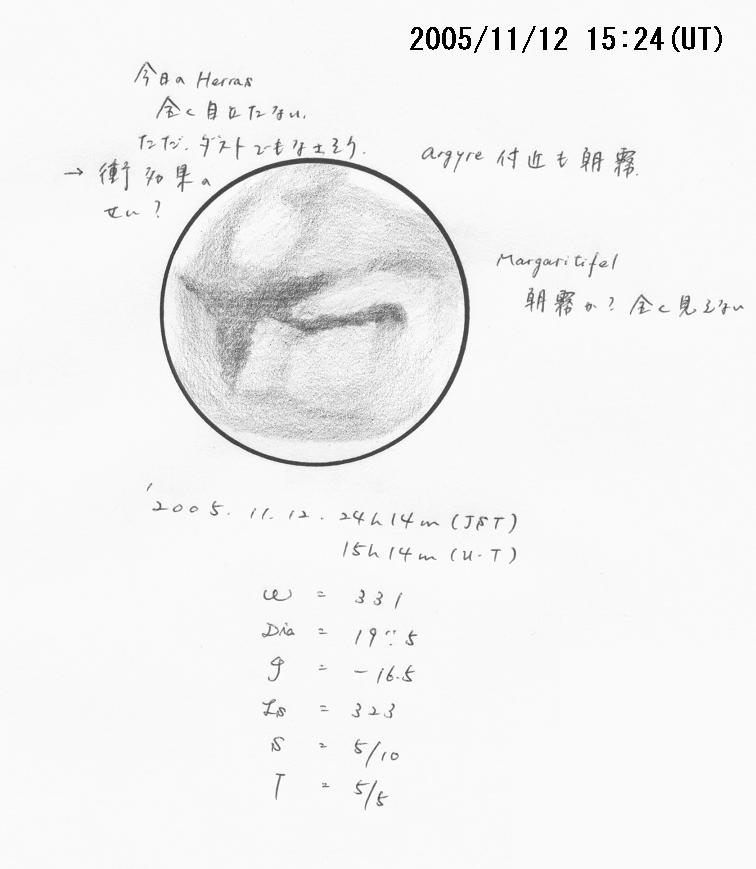 2005/11/12 15:24(UT)
今日の Herras
全く目立たない.
ただ. ダストでもなさそう.
→ 衝効果の
せい?
argyre 付近も朝霧.
Margaritifel
朝霧か? 全く見えない
'2005. 11. 12. 24h 14m (JST)
15h 14m (U.T)
ω = 331
Dia = 19″.5
φ = -16.5
Ls = 323
S = 5/10
T = 5/5